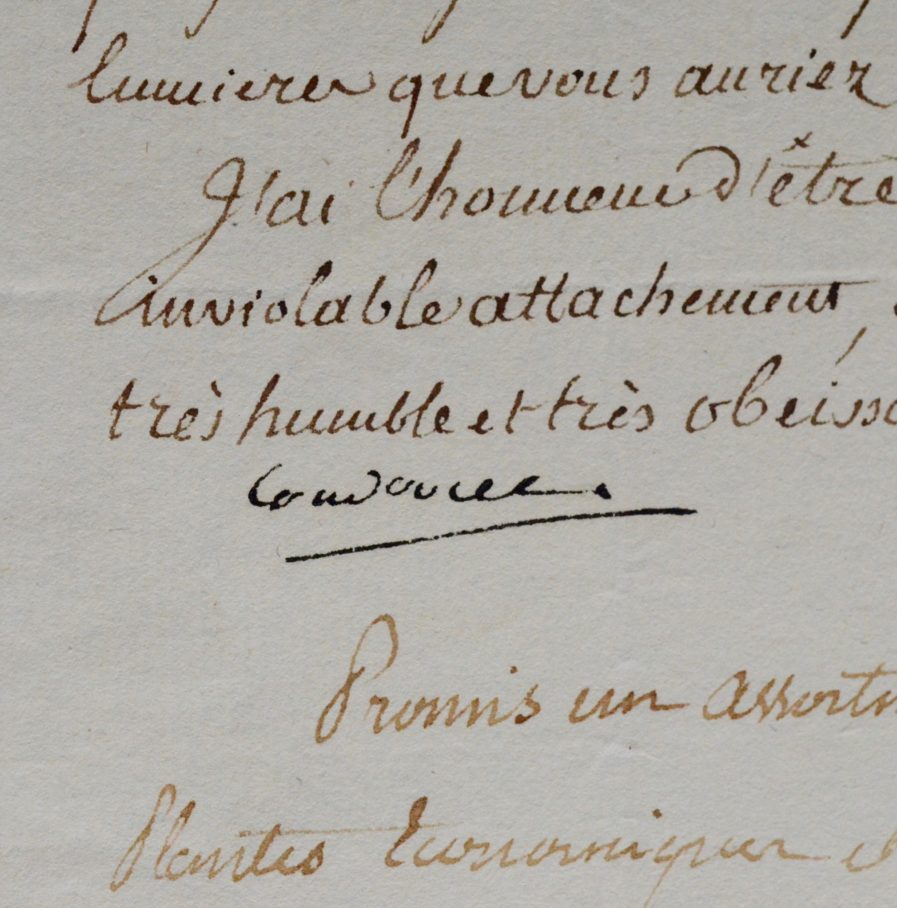 lumieres que vous auriez
J'ai l'honneur d'être
inviolable attachement,
très humble et très obéiss
Condorcet.
Promis un assortim
Plantes Economiques